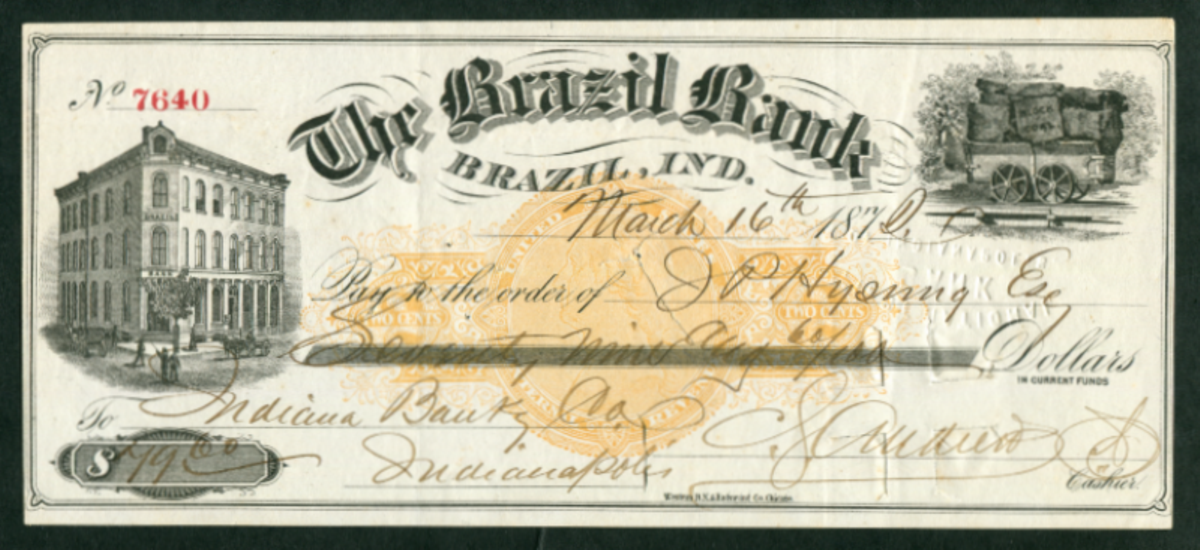 No 7640
The Brazil Bank
BRAZIL, IND.
March 16th 187
Pay to the order of J P Hyoung Esq
Seventy Nine & 60/100 Dollars
IN CURRENT FUNDS
TWO CENTS
TWO CENTS
UNITED
BANK
To Indiana Bankg Co.
$ 79 60
Indianapolis
Cashier
Western B.N. & Co. Chicago